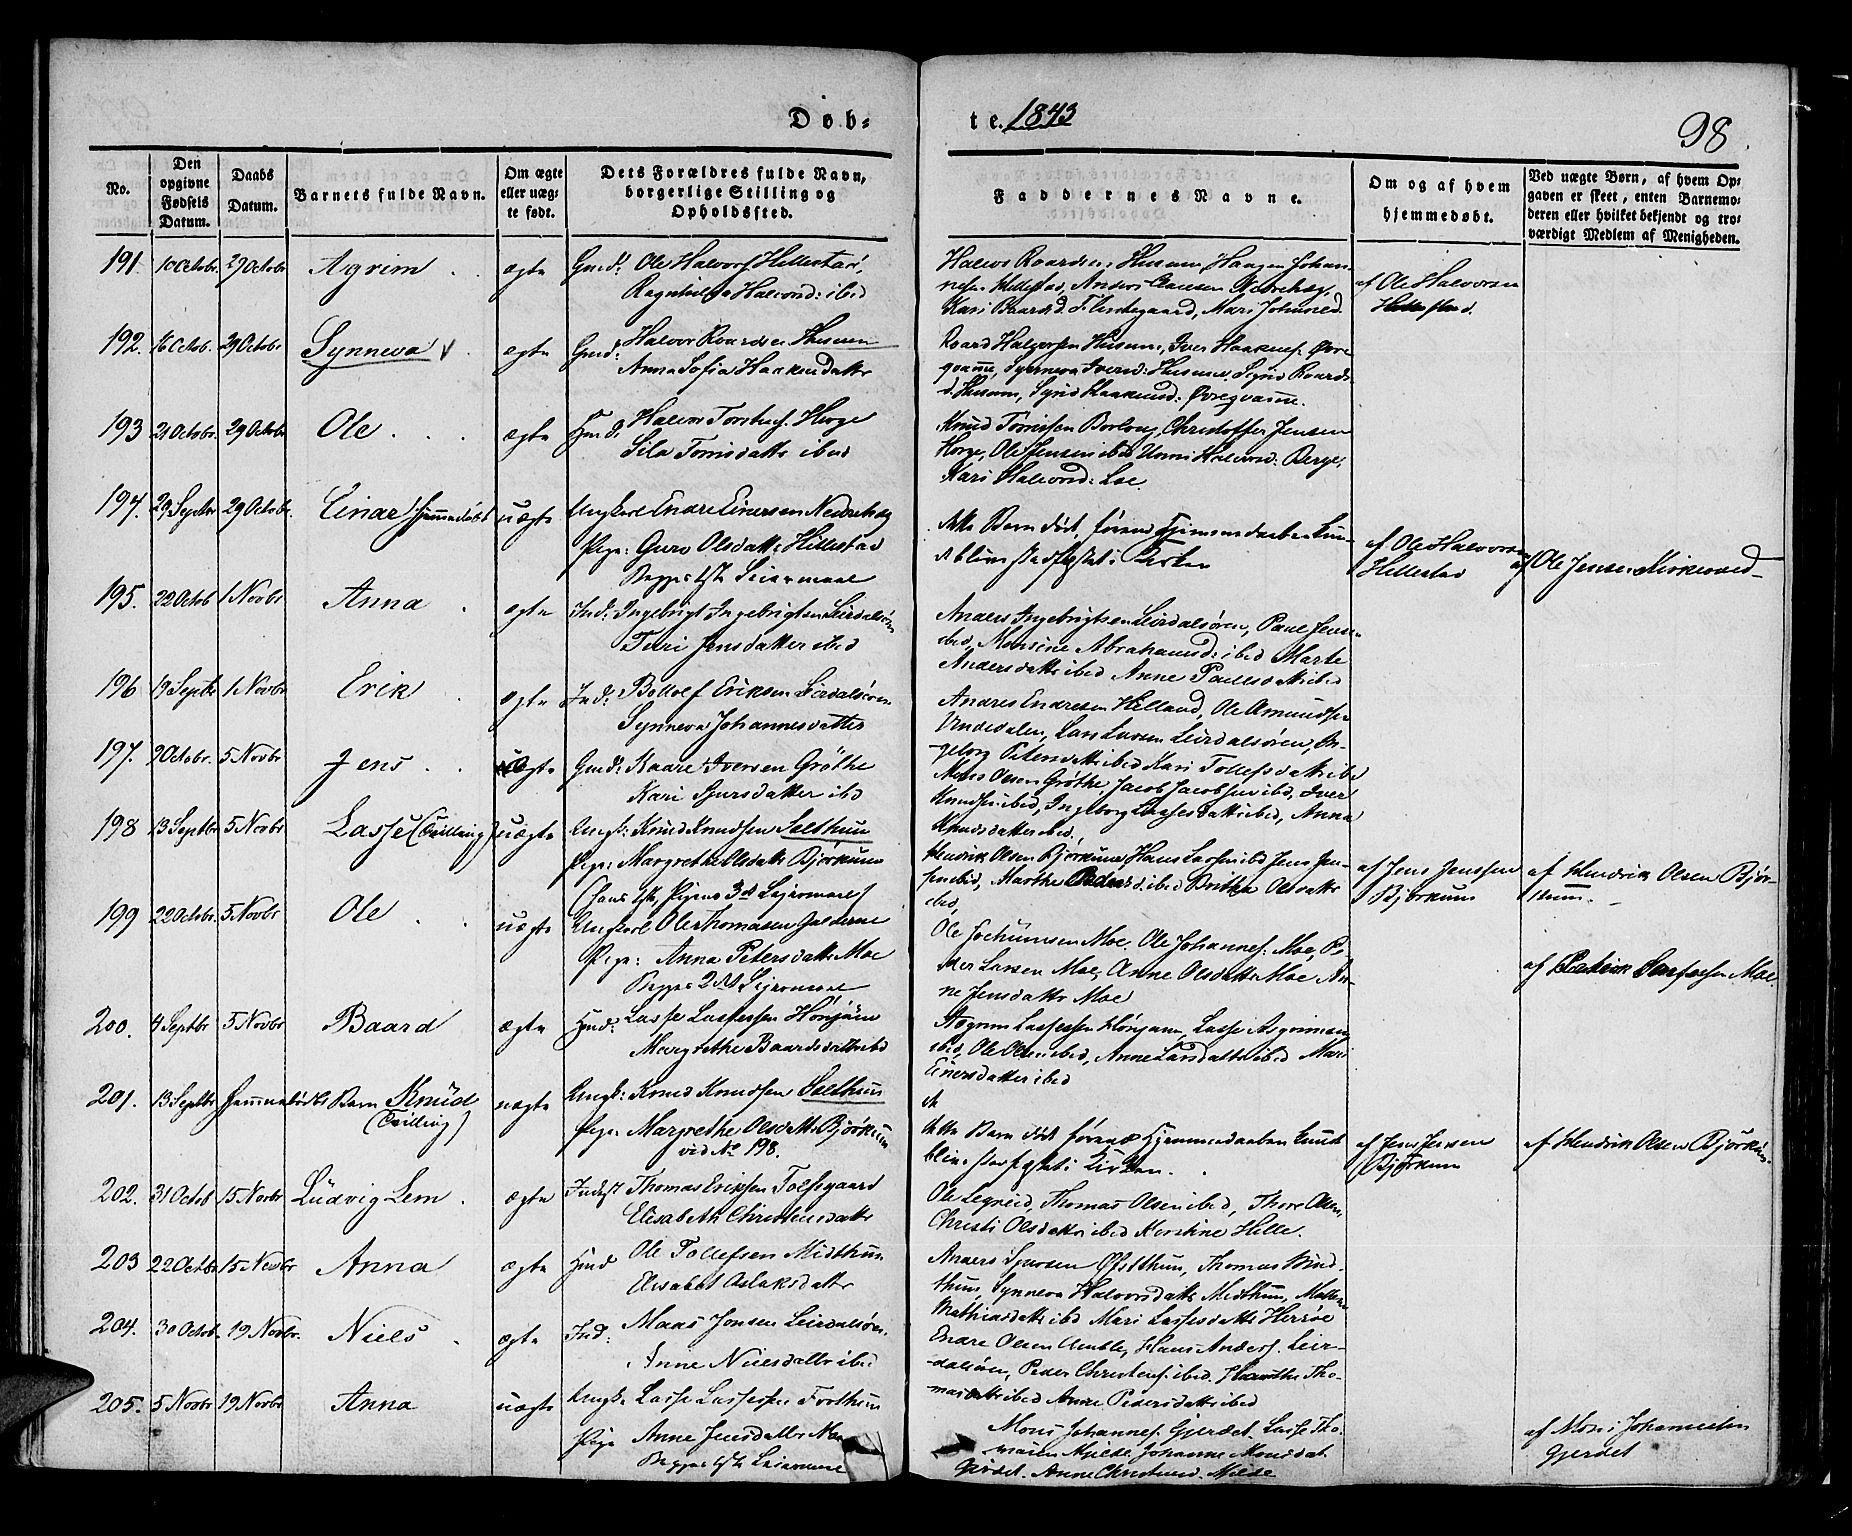 Døb-
te. 1843
98.
No.
Den opgivne Fødsels Datum.
Daabs Datum.
Barnets fulde Navn.
Om ægte eller uægte født.
Dets Forældres fulde Navn, borgerlige Stilling og Opholdssted.
Faddernes Navne.
Om og af hvem hjemmedøbt.
Ved uægte Børn, af hvem Opgaven er skeet, enten Barnemoderen eller hvilket bekjendt og troværdigt Medlem af Menigheden.
191. 10 Octobr 29 Octobr Agrim ægte Gmd: Ole Halvors Hillestad,
Ragnhilda Halvorsd: ibid
Husum Haagen Johan-
nesen Hillestad, Anders Clausen Nedrehæg,
Kari Baardsd. Lindegaard, Mari Johannesd.
af Ole Halvorsen
Hillestad.
192. 16 Octob. 29 Octobr Synneva ægte Gmd: Halvor Roardsen Husum
Anna Sofia Haakensdatter
Roard Halvorsen Husum, Iver Haakens. Øvre
qvamme, Synneva Iversd: Husum, Sigrid Roards-
d. Husum, Synva Haakensd: Øvreqvamme.
193 21 Octobr. 29 Octobr Ole ægte Hmd: Halvor Torstens. Horge
Sila Tomisdatter ibid
Knud Tomisen Borloug, Christoffer Jensen
Horge, Ole Jensen ibid Unni Halvorsd: Berge,
Kari Halvorsd: Loe.
194. 29 Septbr 29 Octobr. Einar Hjemmedøbt uægte Ungkarl Endre Einersen Nedrehæg
Pige: Guro Olsdatter Hillestad
Begges 1ste Leiermaal
dette Barn døde, førend Hjemmedaaben kun-
de blive stadfæstet i Kirken
af Ole Halvorsen
Hillestad
af Ole Jensen
195. 22 Octob 1 Novbr Anna ægte Ind: Ingebrigt Ingebrigtsen Leirdalsøren
Turi Jensdatter ibid
Anders Ingebrigtsen Leirdalsøren, Paul Jensen
ibid, Monsine Abrahamsd: ibid Marte
Andersdatter ibid Anne Paulsdatter ibid
196 19 Septbr 1 Novbr Erik ægte Ind: Bottolf Eriksen Leirdalsøren
Synneva Johannesdatter
Andres Endresen Helland, Ole Amundsen
Undedalen, Lars Larsen Leirdalsøren, In-
geborg Petersdatter ibid Kari Tollefsdatter ibid
197. 9 Octobr. 5 Novbr Jens ægte Gmd: Kaare Iversen Grøthe
Kari Sjursdatter ibd
Mons Olsen Grøthe, Jacob Jacobsen ibid, Iver
Knudsen ibid, Ingeborg Lassesdatter ibid, Anna
Knudsdatter ibid.
198 13 Septbr 5 Novbr Lasse (Tvilling) uægte Ungk: Knud Knudsen Solthun
Pige: Margrethe Olsdatter Bjørkum
(hans 1ste, Pigens 3d Leiermaal)
Hendrik Olsen Bjørkum Hans Larsen ibd Jens Jen-
sen ibid, Marthe Pedersd ibid Brithe Olsdatter
ibid,
af Jens Jenssen
Bjørkum
af Hendrik Olsen Bjør-
kum.
199 22 Octobr. 5 Novbr Ole uægte Ungkarl Ole Thomasen Galderne
Pige: Anna Petersdatter Moe
Begges 2det Leiermaal
Ole Jochumsen Moe, Ole Johannes. Moe, Pe-
der Larsen Moe, Anne Olsdatter Moe An-
ne Jensdatter Moe
200. 4 Septbr 5 Novbr Baard ægte Hmd: Lasse Lassessen Hønjum
Margrethe Baardsdatter ibd
Asgrim Lassessen Hønjum, Lasse Asgrimsen
ibid, Ole Olsen ibid, Anne Larsdatter ibid Mari
Einersdatter ibid
201. 13 Septbr Hjemmedøbt Barn Knud
(Tvilling)
uægte Ungk: Knud Knudsen Solthun
Pige: Margrethe Olsdatter Bjørkum
vid No 198.
dette Barn døde førend Hjemmedaaben kunde
blive stadfæstet i Kirken.
af Jens Jensen
Bjørkum
af Hendrik Olsen Bjørkum
202. 31 Octob 15 Novbr Ludvig Lem. ægte Indst Thomas Eriksen Toftegaard
Elisabeth Christensdatter
Ole Legreid, Thomas Olsen ibid, Thore Olsen,
Christi Olsdatter ibid Kerstine Hille.
203 22 Octobr 15 Novbr Anna ægte Hmd Ole Tollefsen Midthun
Elisabet Aslaksdatter
Anders Sjursen Øfsthun, Thomas Mid-
thun, Synneva Halvorsdatter Midthun,
Mathiasdatter ibid Mari Lassesdatter
204. 30 Octob. 19 Novbr. Niels ægte Ind: Maas Jonsen Leirdalsøren,
Anne Nielsdatter ibid
Endre Olsen Amble, Hans Anders. Leir-
dalsøren, Peder Christens. ibid. Marthe Tho-
masdatter ibid Anne Pedersdatter ibid
205. 5 Novbr 19 Novbr Anna uægte Ungk. Lasse Lassessen Forthun
Pige Anne Jensdatter
Begges 1ste Leiermaal
Mons Johannes. Gjerdet, Lasse Tho-
masen Mjelde, Johanne Monsdat
Gjerdet. Anne Christensd. Mjelde
af Mons Johannesen
Gjerdet